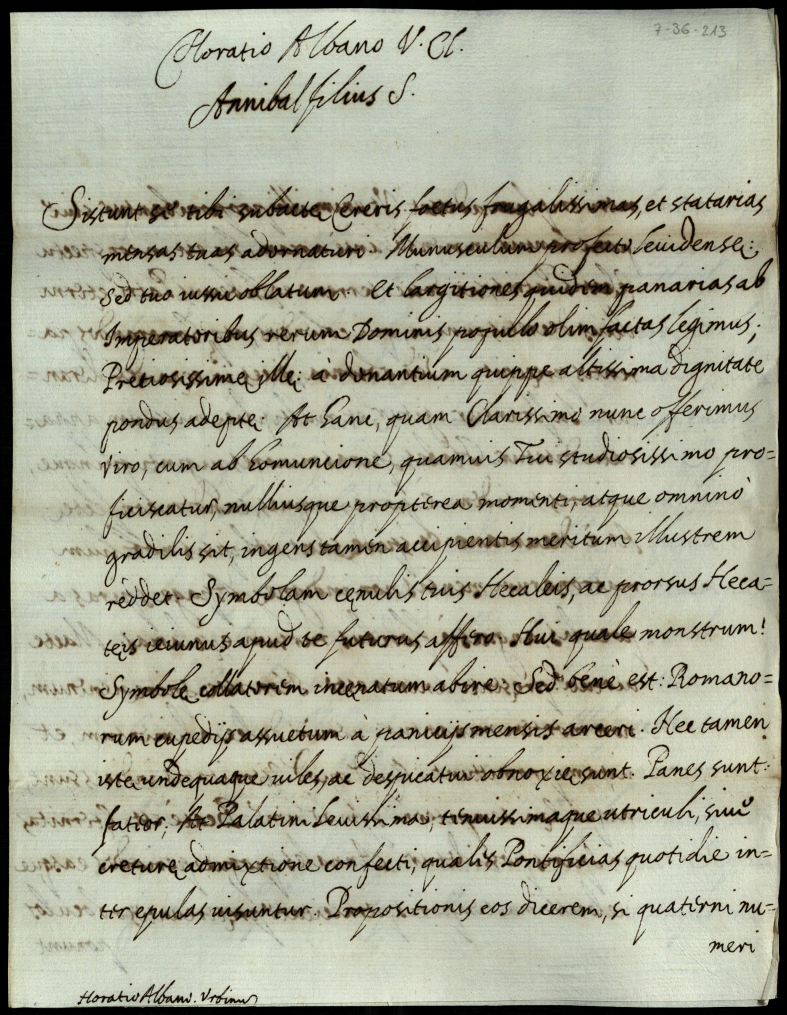 7-36-213
Horatio Albano V. Cl.
Annibal filius S.
Sistunt se tibi subactę Cereris foetus frugalissimas, et statarias
mensas tuas adornaturi. Munusculum profecto levidensę:
sed tuo iussu oblatum. et largitiones quidem panarias ab
Imperatoribus rerum Dominis populo olim factas legimus;
Pretiosissimę illę: à donantium quippe altissima dignitate
pondus adeptę. At hanc, quam Clarissimo nunc offerimus
viro, cum ab homuncione, quamuis Tui studiosissimo pro=
ficiscatur, nulliusque propterea momenti, atque omninò
gracilis sit, ingens tamen accipientis meritum illustrem
reddet. Symbolam cęnulis tuis Hecaleis, ac prorsus Heca=
tęis ieiunus apud te futurus affero. Hui quale monstrum!
Symbolę collatorem incęnatum abire. Sed benè est: Romano=
rum cupedijs assuetum à panicijs mensis arceri. Hec tamen
istę undequaque uiles, ac despicatui obnoxię sunt. Panes sunt:
fateor; At Palatini leuissima, tenuissimaque utriculi, siuè
creturę admixtione confecti; qualis Pontificias quotidie in=
ter epulas uisuntur. Propositionis eos dicerem, si quaterni nu=
meri
Horatio Albano. Urbinum